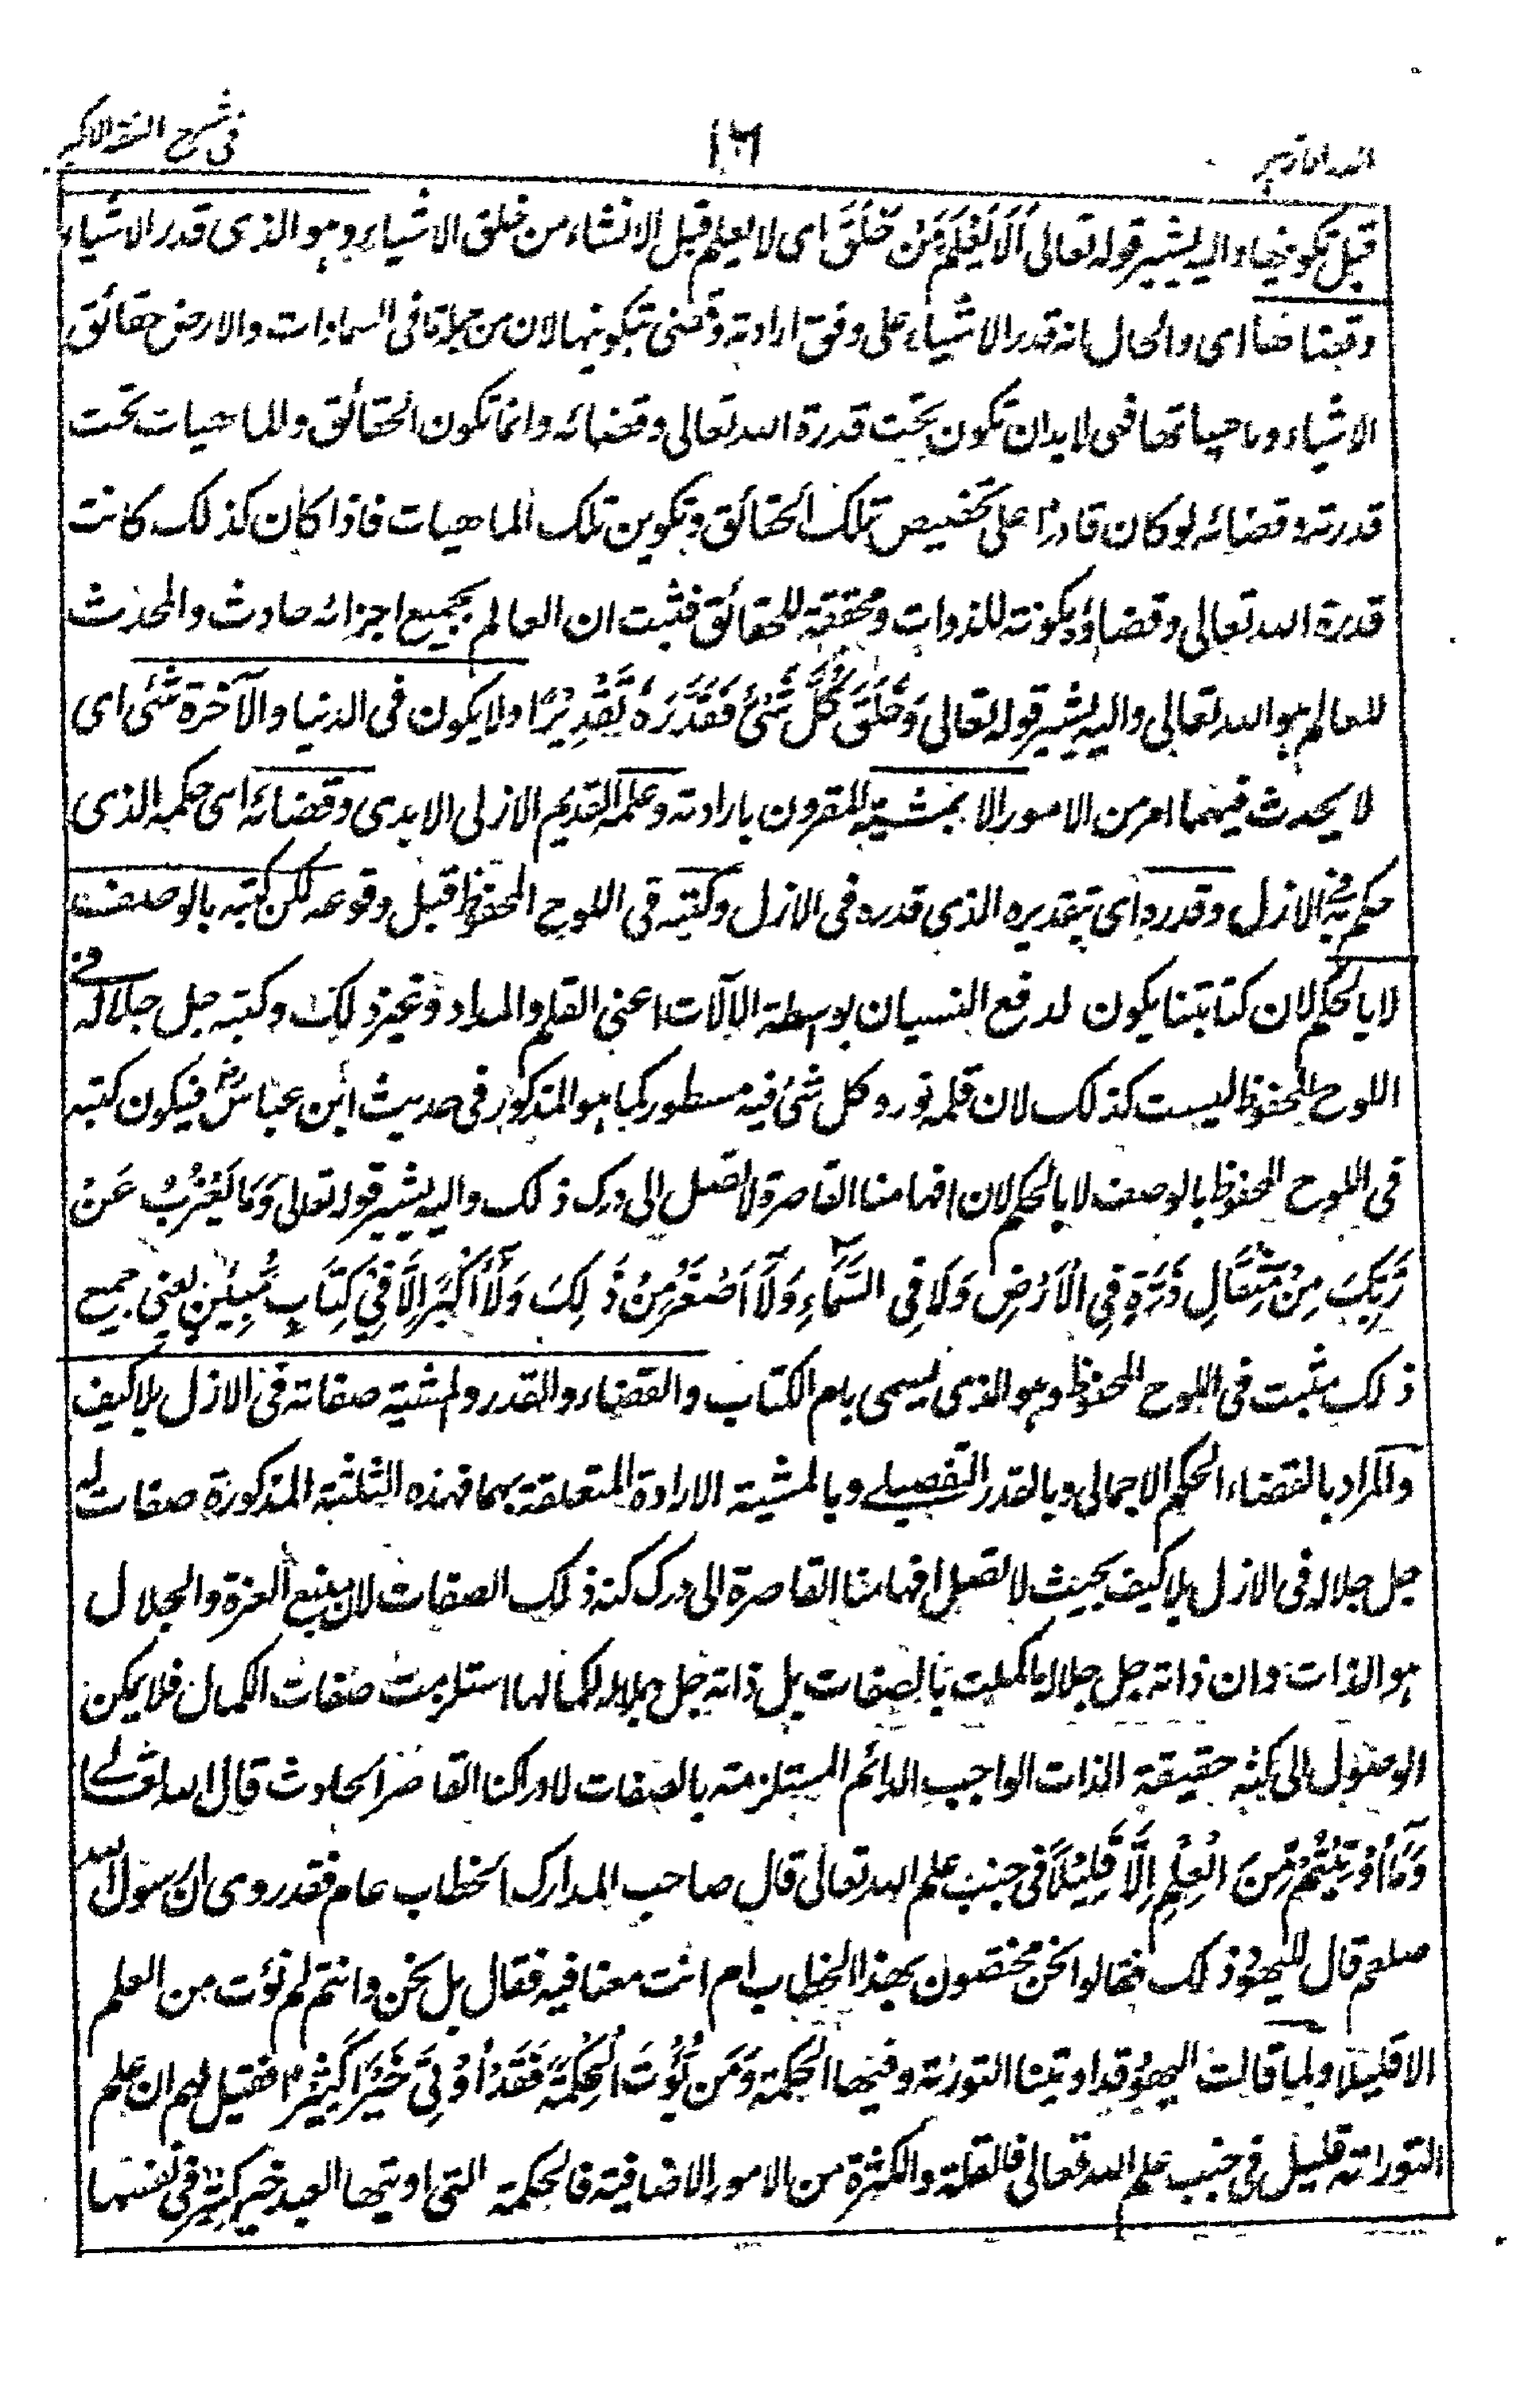 فى شرح الفقه الاكبر
١٦
الدر الازهر
قبل تكونها واليه يشير قوله تعالى اَلَا يَعْلَمُ مَنْ خَلَقَ اى لا يعلم قبل الانشاء من خلق الاشياء وهو الذى قدر الاشياء
وقضاها اى والحال انه قدر الاشياء على وفق ارادته وقضى بتكوينها لان من جملة ما فى السماوات والارض حقائق
الاشياء وماهياتها فهى لابد ان تكون تحت قدرة الله تعالى وقضائه وانما تكون الحقائق والماهيات تحت
قدرته وقضائه لو كان قادرا على تخصيص تلك الحقائق وتكوين تلك الماهيات فاذا كان كذلك كانت
قدرة الله تعالى وقضاؤه مكونة للذوات ومحققة للحقائق فثبت ان العالم بجميع اجزائه حادث والمحدث
للعالم هو الله تعالى واليه يشير قوله تعالى وَخَلَقَ كُلَّ شَىْءٍ فَقَدَّرَهٗ تَقْدِيْرًا ولا يكون فى الدنيا والآخرة شئ اى
لا يحدث فيهما امر من الامور الا بمشيته المقرون بارادته وعلمه القديم الازلى الابدى وقضائه اى حكمه الذى
حكم به فى الازل وقدره اى بتقديره الذى قدره فى الازل وكتبه فى اللوح المحفوظ قبل وقوعه لكن كتبه بالوصف
لا بالحكم لان كتابتنا يكون لدفع النسيان بوسطة الآلات اعنى القلم والمداد وغير ذلك وكتبه جل جلاله فى
اللوح المحفوظ ليست كذلك لان قلمه نور وكل شئ فيه مسطور كما هو المذكور فى حديث ابن عباس رض فيكون كتبه
فى اللوح المحفوظ بالوصف لا بالحكم لان افهامنا القاصرة لا تصل الى درك ذلك واليه يشير قوله تعالى وَمَا يَعْزُبُ عَنْ
رَّبِّكَ مِنْ مِّثْقَالِ ذَرَّةٍ فِى الْاَرْضِ وَلَا فِى السَّمَاءِ وَلَآ اَصْغَرَ مِنْ ذٰلِكَ وَلَآ اَكْبَرَ اِلَّا فِىْ كِتَابٍ مُّبِيْنٍ يعنى جميع
ذلك مثبت فى اللوح المحفوظ وهو الذى يسمى بام الكتاب والقضاء والقدر والمشية صفاته فى الازل بلا كيف
والمراد بالقضاء الحكم الاجمالى وبالقدر التفصيلى وبالمشية الارادة المتعلقة بهما فهذه الثلثة المذكورة صفات له
جل جلاله فى الازل بلا كيف بحيث لا تصل افهامنا القاصرة الى درك كنه ذلك الصفات لان منبع العزة والجلال
هو الذات وان ذاته جل جلاله ما كملت بالصفات بل ذاته جل جلاله لكمالها استلزمت صفات الكمال فلا يمكن
الوصول الى كنه حقيقة الذات الواجب الدائم المستلزمة بالصفات لادراكنا القاصر الحادث قال الله تعالى
وَمَآ اُوْتِيْتُمْ مِّنَ الْعِلْمِ اِلَّا قَلِيْلًا فى جنب علم الله تعالى قال صاحب المدارك الخطاب عام فقد روى ان رسول الله
صلعم قال لليهود ذلك فقالوا نحن مختصون بهذا الخطاب ام انت معنا فيه فقال بل نحن وانتم لم نؤت من العلم
الا قليلا ولما قالت اليهود قد اوتينا التورٰة وفيها الحكمة وَمَنْ يُّؤْتَ الْحِكْمَةَ فَقَدْ اُوْتِىَ خَيْرًا كَثِيْرًا فقيل لهم ان علم
التوراة قليل فى جنب علم الله تعالى فالقلة والكثرة من الامور الاضافية فالحكمة التى اوتيها العبد خير كثير فى نفسها